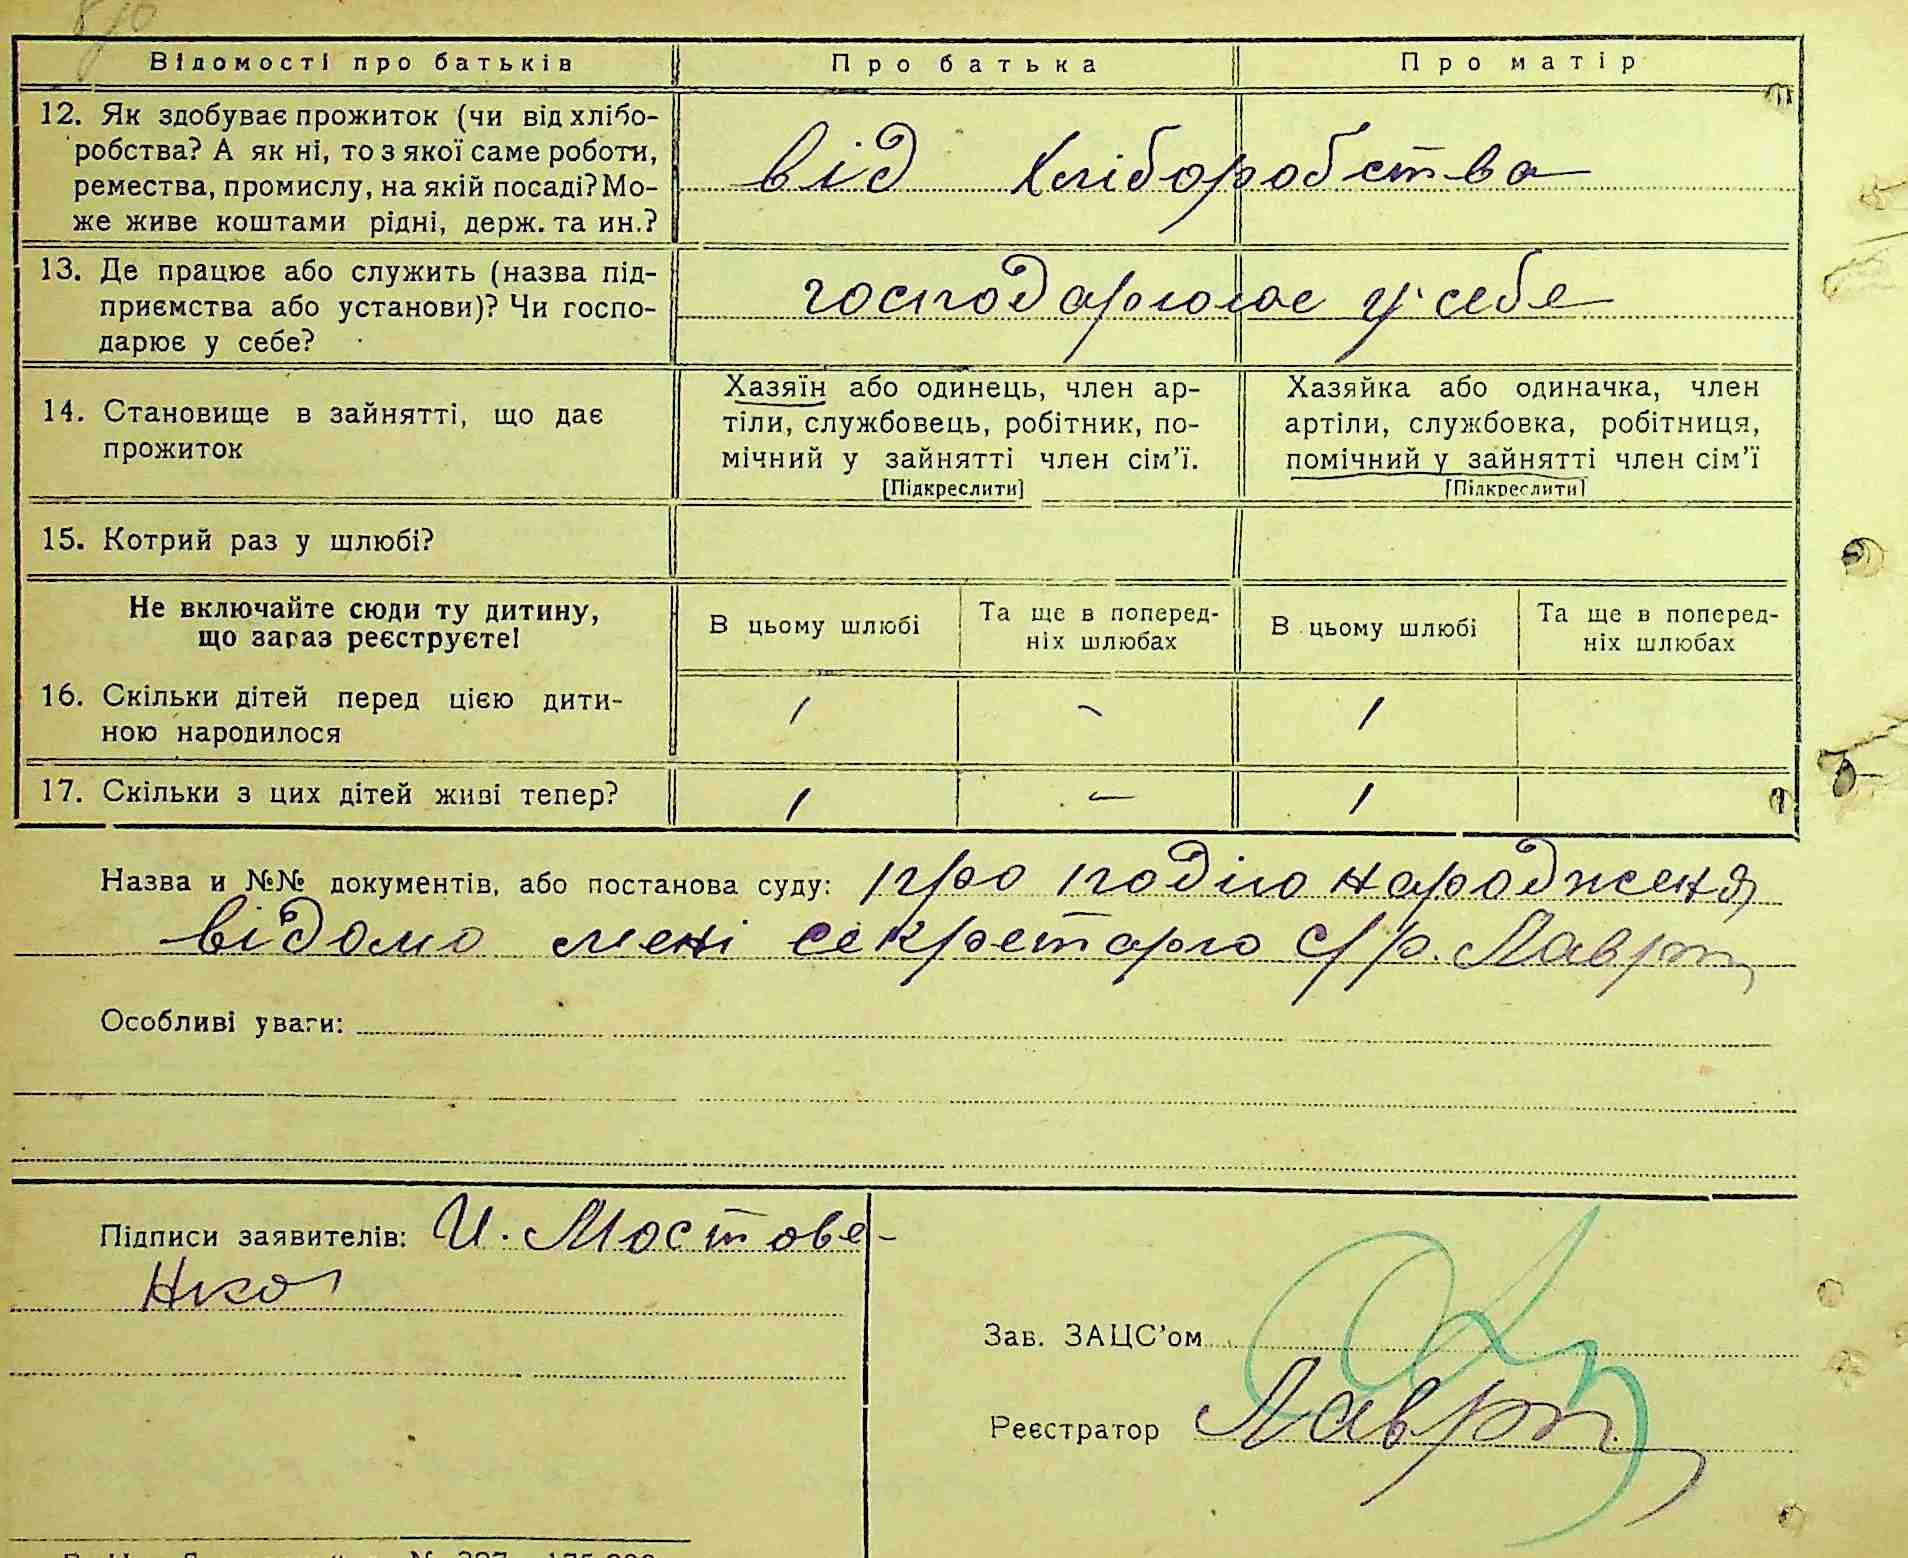 Відомості про батьків Про батька Про матір
12. Як здобуває прожиток (чи від хлібо-
робства? А як ні, то з якої саме роботи,
ремества, промислу, на якій посаді? Мо-
же живе коштами рідні, держ. та ин.?
від хліборобства
13. Де працює або служить (назва під-
приємства або установи)? Чи госпо-
дарює у себе?
господарює у себе
14. Становище в зайнятті, що дає
прожиток
Хазяїн або одинець, член ар-
тіли, службовець, робітник, по-
мічний у зайнятті член сім’ї.
[Підкреслити]
Хазяйка або одиначка, член
артіли, службовка, робітниця,
помічний у зайнятті член сім’ї
[Підкреслити]
15. Котрий раз у шлюбі?
Не включайте сюди ту дитину,
що зараз реєструєте!
В цьому шлюбі
Та ще в поперед-
ніх шлюбах
В цьому шлюбі
Та ще в поперед-
ніх шлюбах
16. Скільки дітей перед цією дити-
ною народилося
1 - 1
17. Скільки з цих дітей живі тепер?
1 - 1
Назва и №№ документів, або постанова суду: про подію народженя
відомо мені секретарю с/р. Лавр
Особливі уваги:
Підписи заявителів: И. Мостове-
нко
Зав. ЗАЦС’ом
Реєстратор Лавр